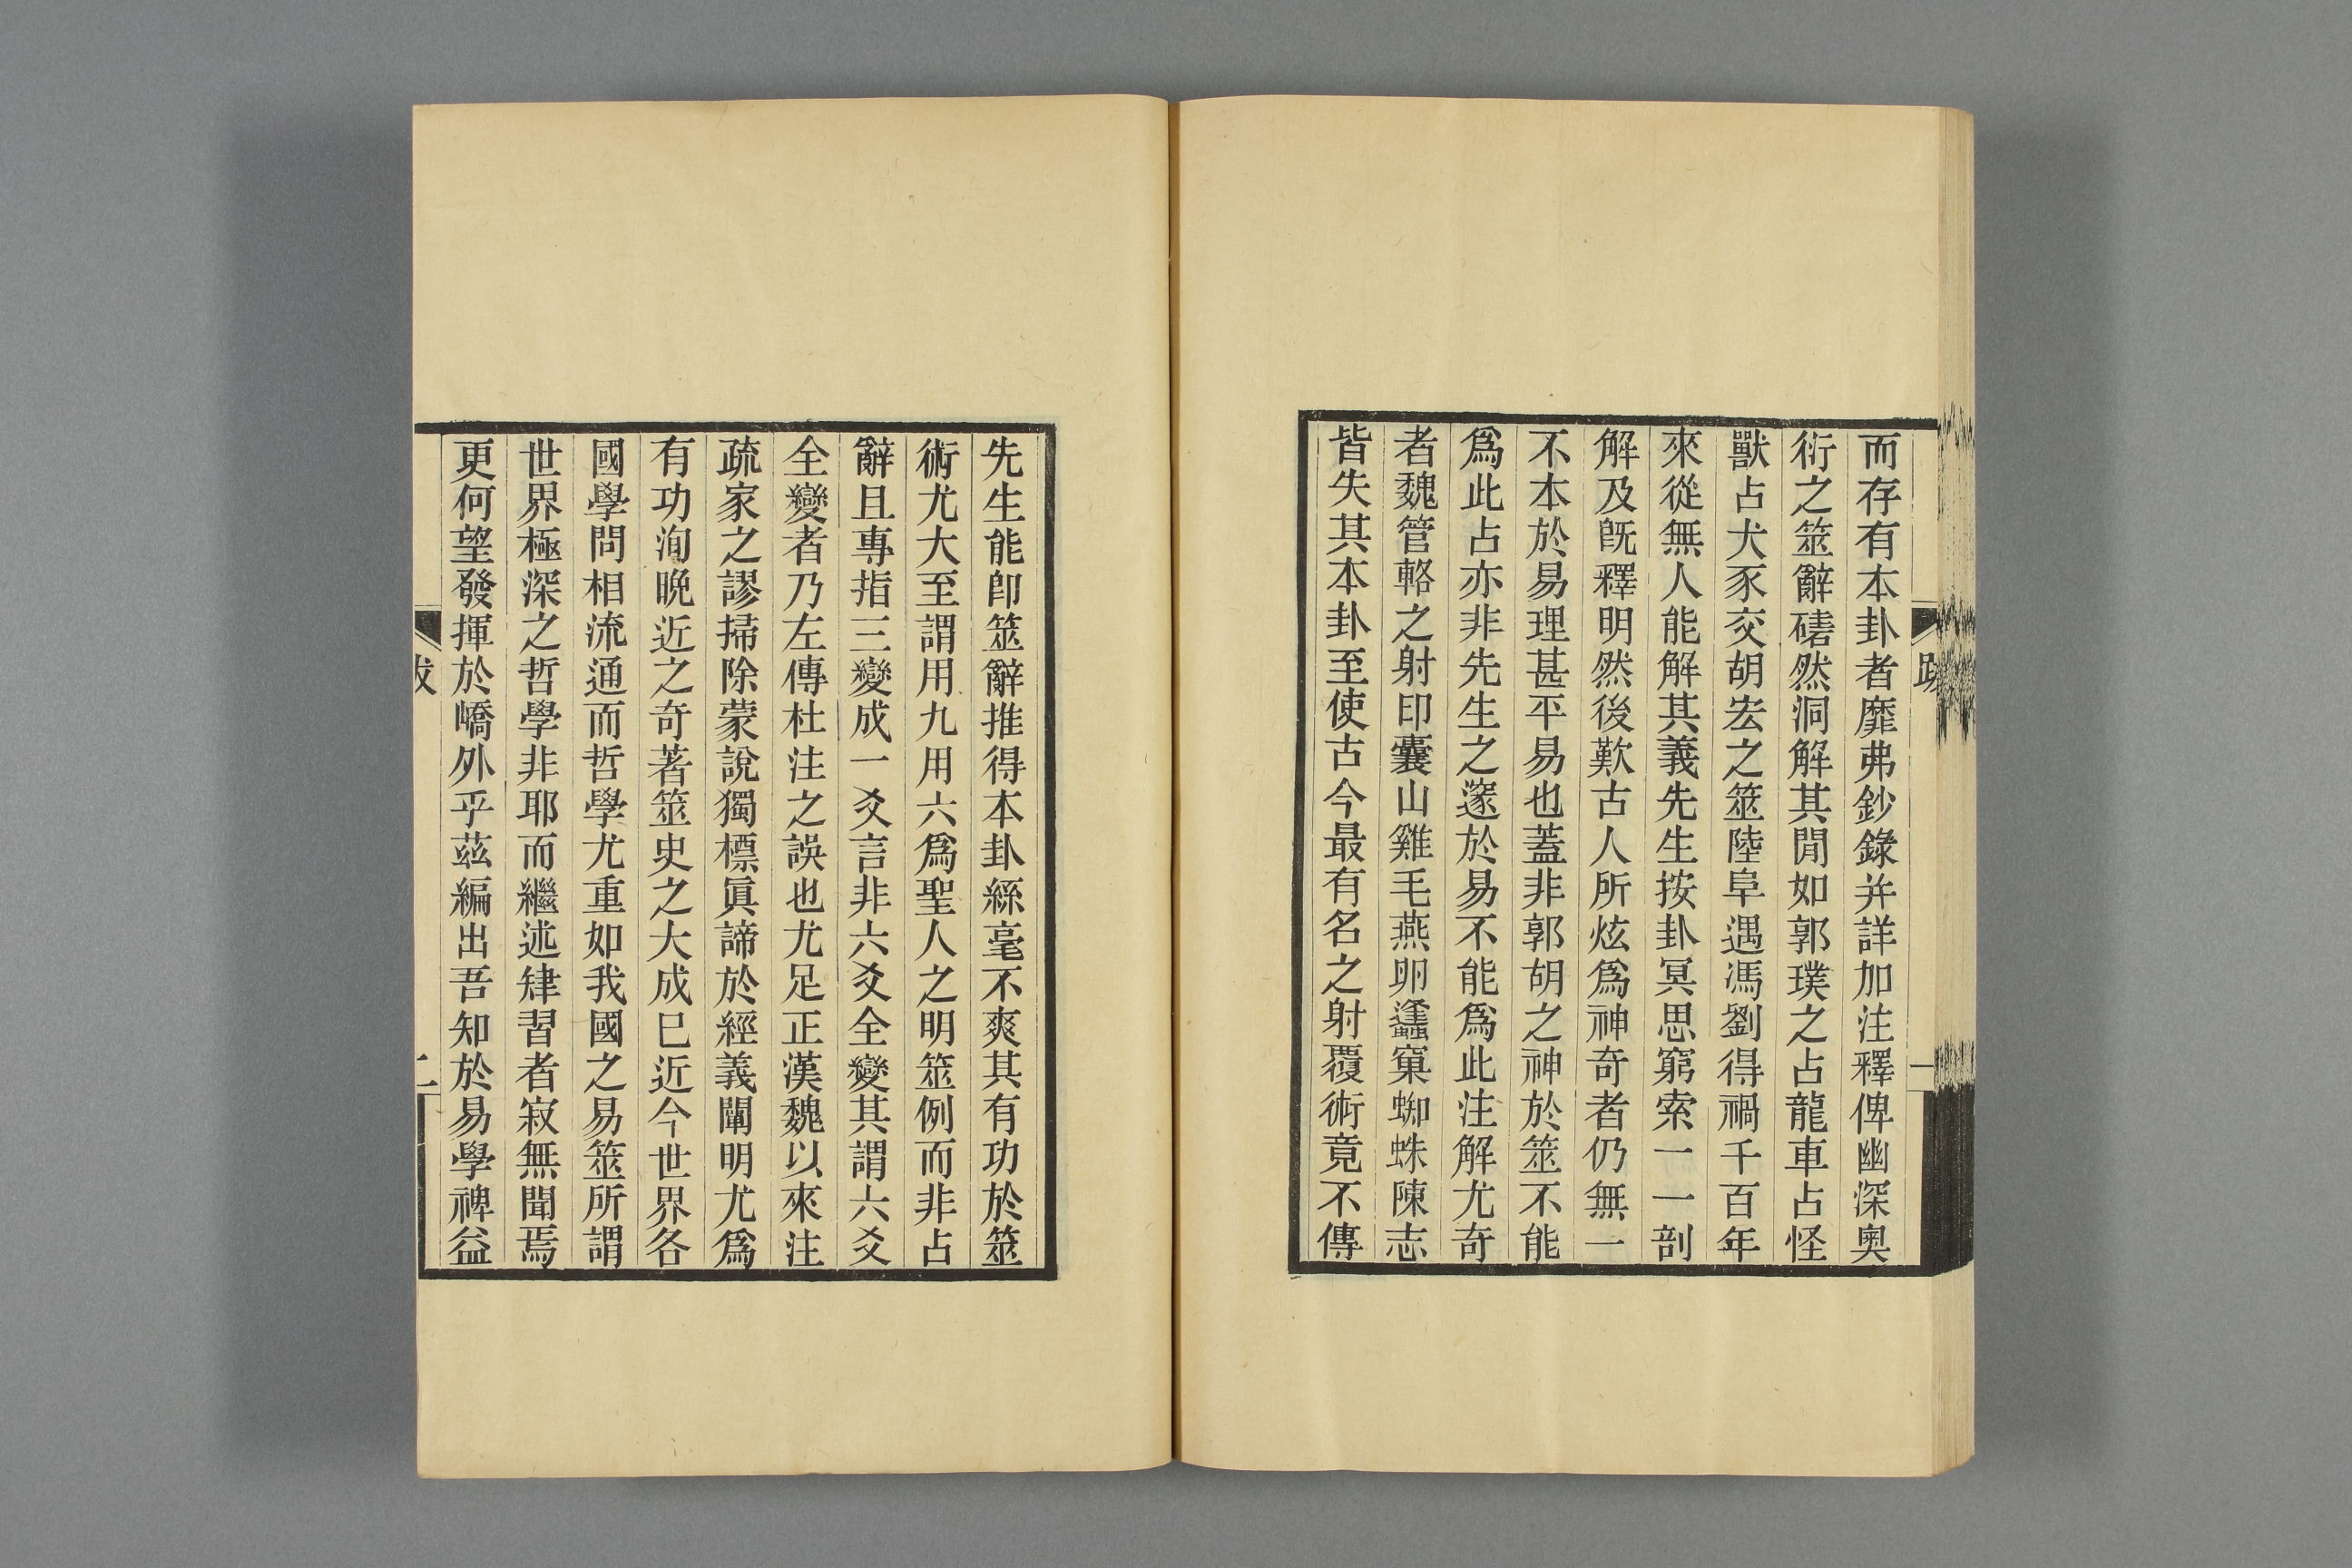 而存有本卦者靡弗鈔錄并詳加注釋俾幽深奧
衍之筮辭磔然洞解其閒如郭璞之占龍車占怪
獸占犬豕交胡宏之筮陸阜遇馮劉得禍千百年
來從無人能解其義先生按卦冥思窮索一一剖
解及既釋明然後歎古人所炫爲神奇者仍無一
不本於易理甚平易也蓋非郭胡之神於筮不能
爲此占亦非先生之邃於易不能爲此注解尤奇
者魏管輅之射印囊山雞毛燕卵蠭窠蜘蛛陳志
皆失其本卦至使古今最有名之射覆術竟不傳
先生能卽筮辭推得本卦絲毫不爽其有功於筮
術尤大至謂用九用六爲聖人之明筮例而非占
辭且專指三變成一爻言非六爻全變其謂六爻
全變者乃左傳杜注之誤也尤足正漢魏以來注
疏家之謬掃除蒙說獨標眞諦於經義闡明尤爲
有功洵晚近之奇著筮史之大成巳近今世界各
國學問相流通而哲學尤重如我國之易筮所謂
世界極深之哲學非耶而繼述肄習者寂無聞焉
更何望發揮於嶠外乎茲編出吾知於易學裨益
跋
一
二